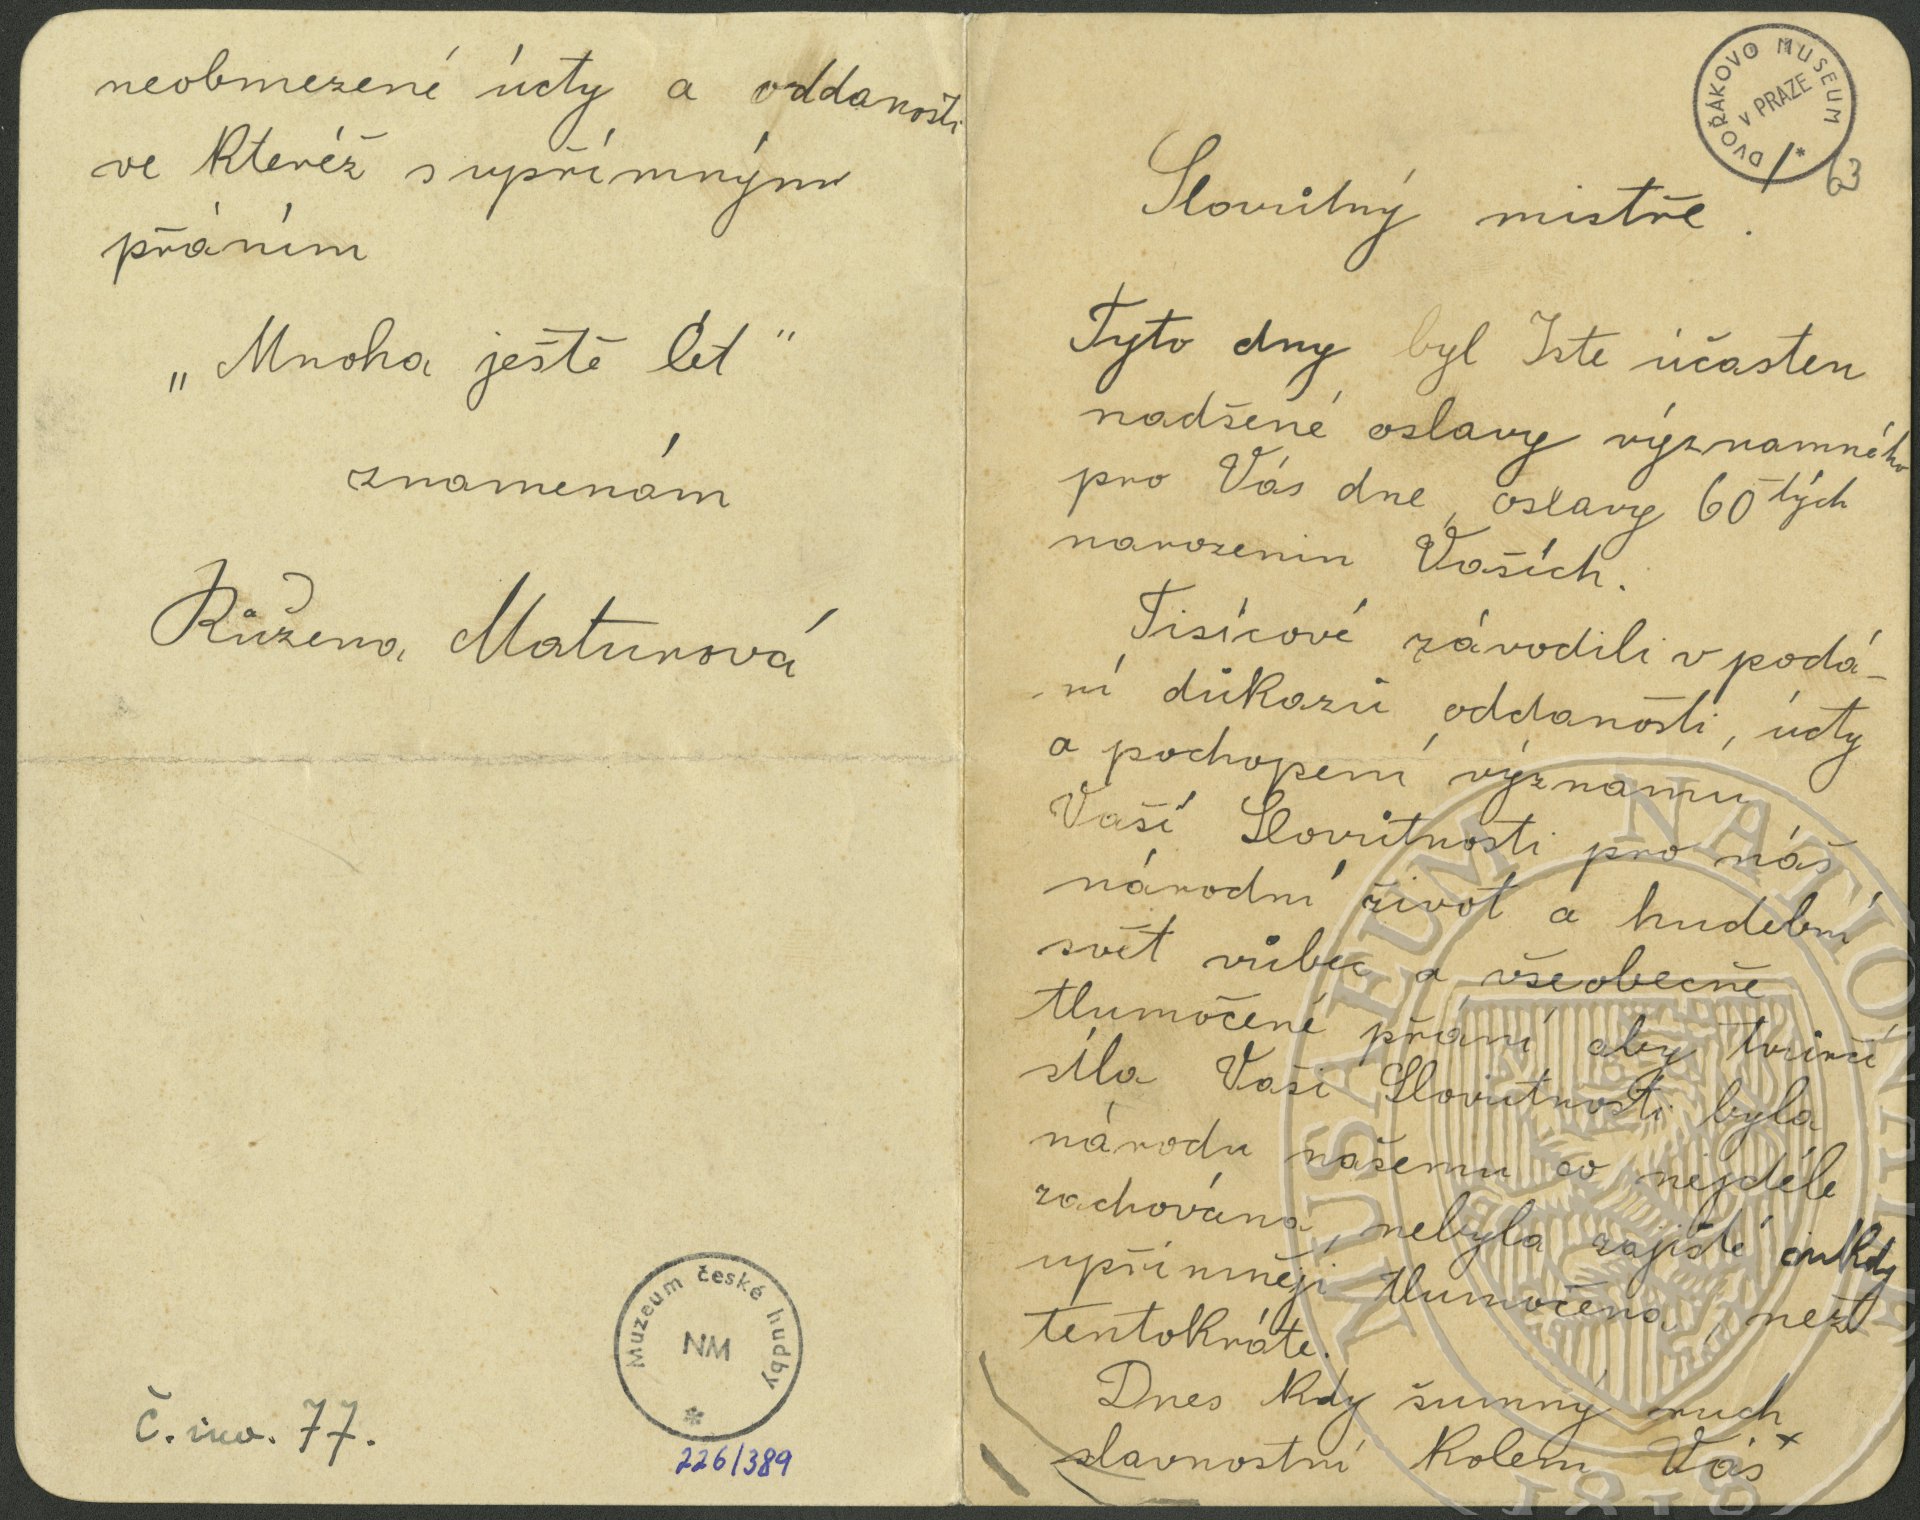 neobmezené úcty a oddanosti
ve kteréž s upřímným
přáním
„Mnoha ještě lét"
znamenám
Růžena Maturová
Muzeum české hudby
NM
*
226/389
Č. inv. 77.
DVOŘÁKOVO MUSEUM
V PRAZE
*
1/63
Slovutný mistře.
Tyto dny byl Jste účasten
nadšené oslavy významného
pro Vás dne, oslavy 60tých
narozenin Vašich.
Tisícové závodili v podá-
ní důkazů oddanosti, úcty
a pochopení významu
Vaší Slovutnosti pro náš
národní život a hudební
svět vůbec a všeobecně
tlumočené přání aby tvůrčí
síla Vaší Slovutnosti byla
národu našemu co nejdéle
zachována, nebyla zajisté
upřímněji tlumočena, než
tentokráte.
Dnes kdy šumný ruch
slavnostní kolem Vás
MUSAEUM NATIONALE
1818